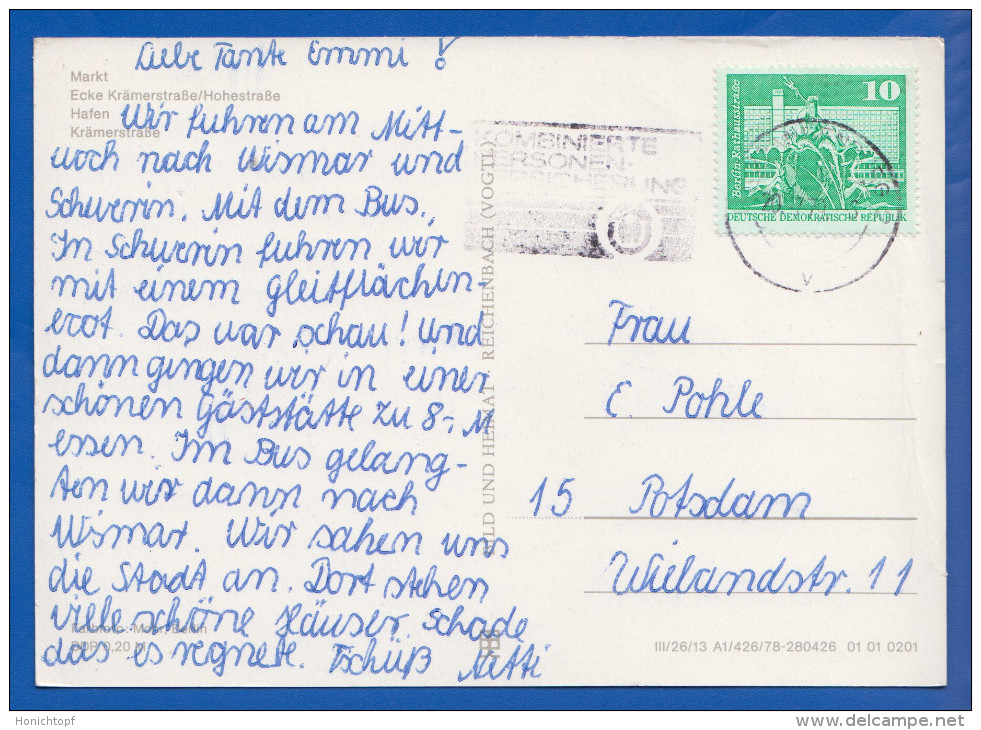 Liebe Tante Emmi!
Markt
Ecke Krämerstraße/Hohestraße
Hafen
Krämerstraße
Wir fuhren am Mitt-
woch nach Wismar und
Schwerin. Mit dem Bus.
In Schwerin fuhren wir
mit einem gleitflächen-
boot. Das war schau! Und
dann gingen wir in einer
schönen Gäststätte zu 8,- M
essen. Im Bus gelang-
ten wir dann nach
Wismar. Wir sahen uns
die Stadt an. Dort stehen
viele schöne Häuser. Schade
das es regnete. Tschüß Netti
Farbfoto: Mohr, Berlin
DDR 0,20 M
BILD UND HEIMAT REICHENBACH (VOGTL)
KOMBINIERTE
PERSONEN-
VERSICHERUNG
10
Berlin Rathausstraße
DEUTSCHE DEMOKRATISCHE REPUBLIK
v
Frau
E. Pohle
15 Potsdam
Wielandstr. 11
III/26/13 A1/426/78-280426 01 01 0201
Honichtopf
www.delcampe.net